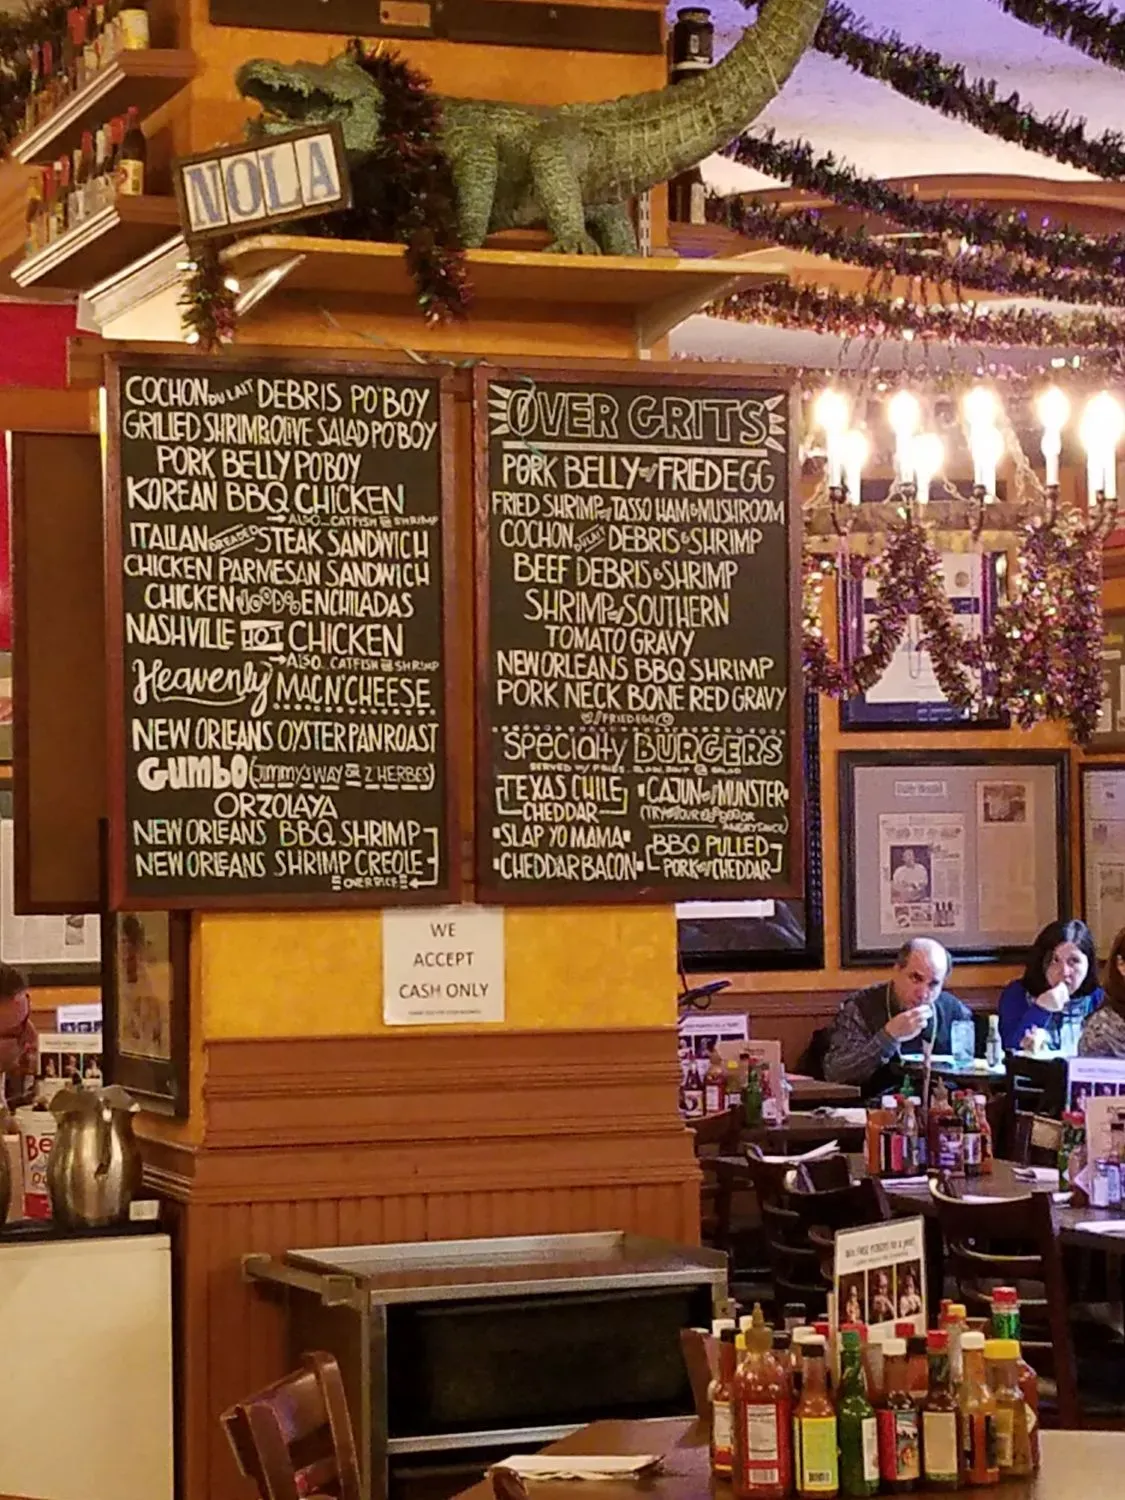 NOLA
COCHON DU LAIT DEBRIS PO'BOY
GRILLED SHRIMP & OLIVE SALAD PO'BOY
PORK BELLY POBOY
KOREAN BBQ CHICKEN
ALSO... CATFISH OR SHRIMP
ITALIAN BREADED STEAK SANDWICH
CHICKEN PARMESAN SANDWICH
CHICKEN ENCHILADAS
NASHVILLE HOT CHICKEN
ALSO... CATFISH OR SHRIMP
Heavenly MAC N' CHEESE
NEW ORLEANS OYSTER PAN ROAST
GUMBO (JIMMY'S WAY OR Z HERBES)
ORZOLAYA
NEW ORLEANS BBQ SHRIMP
NEW ORLEANS SHRIMP CREOLE
OVER RICE
OVER GRITS
PORK BELLY w/ FRIED EGG
FRIED SHRIMP w/ TASSO HAM & MUSHROOM
COCHON DU LAIT DEBRIS & SHRIMP
BEEF DEBRIS & SHRIMP
SHRIMP w/ SOUTHERN
TOMATO GRAVY
NEW ORLEANS BBQ SHRIMP
PORK NECK BONE RED GRAVY
W/ FRIED EGG
SPECIALTY BURGERS
SERVED W/ FRIES
TEXAS CHILE
CHEDDAR
SLAP YO MAMA
CHEDDAR BACON
CAJUN w/ MUNSTER
BBQ PULLED
PORK w/ CHEDDAR
WE
ACCEPT
CASH ONLY
Be